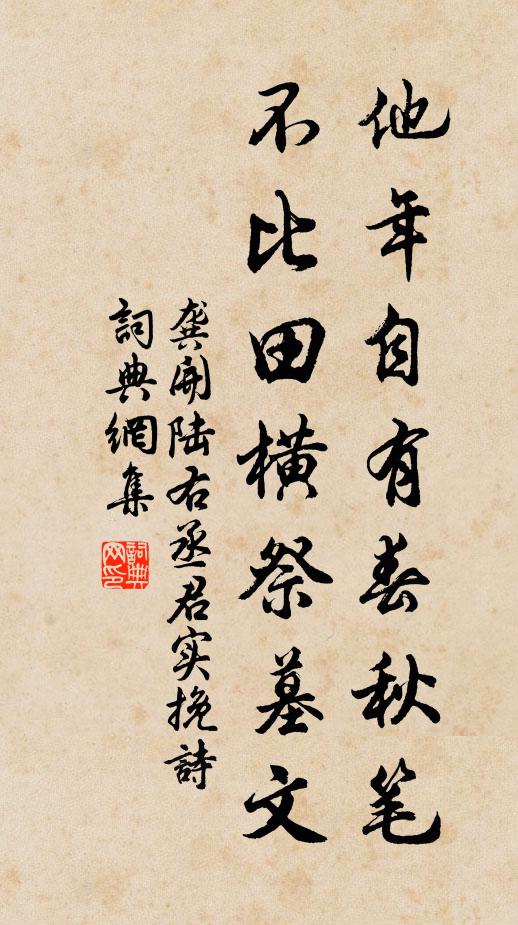 他年自有春秋笔
不比田横祭墓文
龚开陆右丞君实挽詩
詞典網集
詞典网印